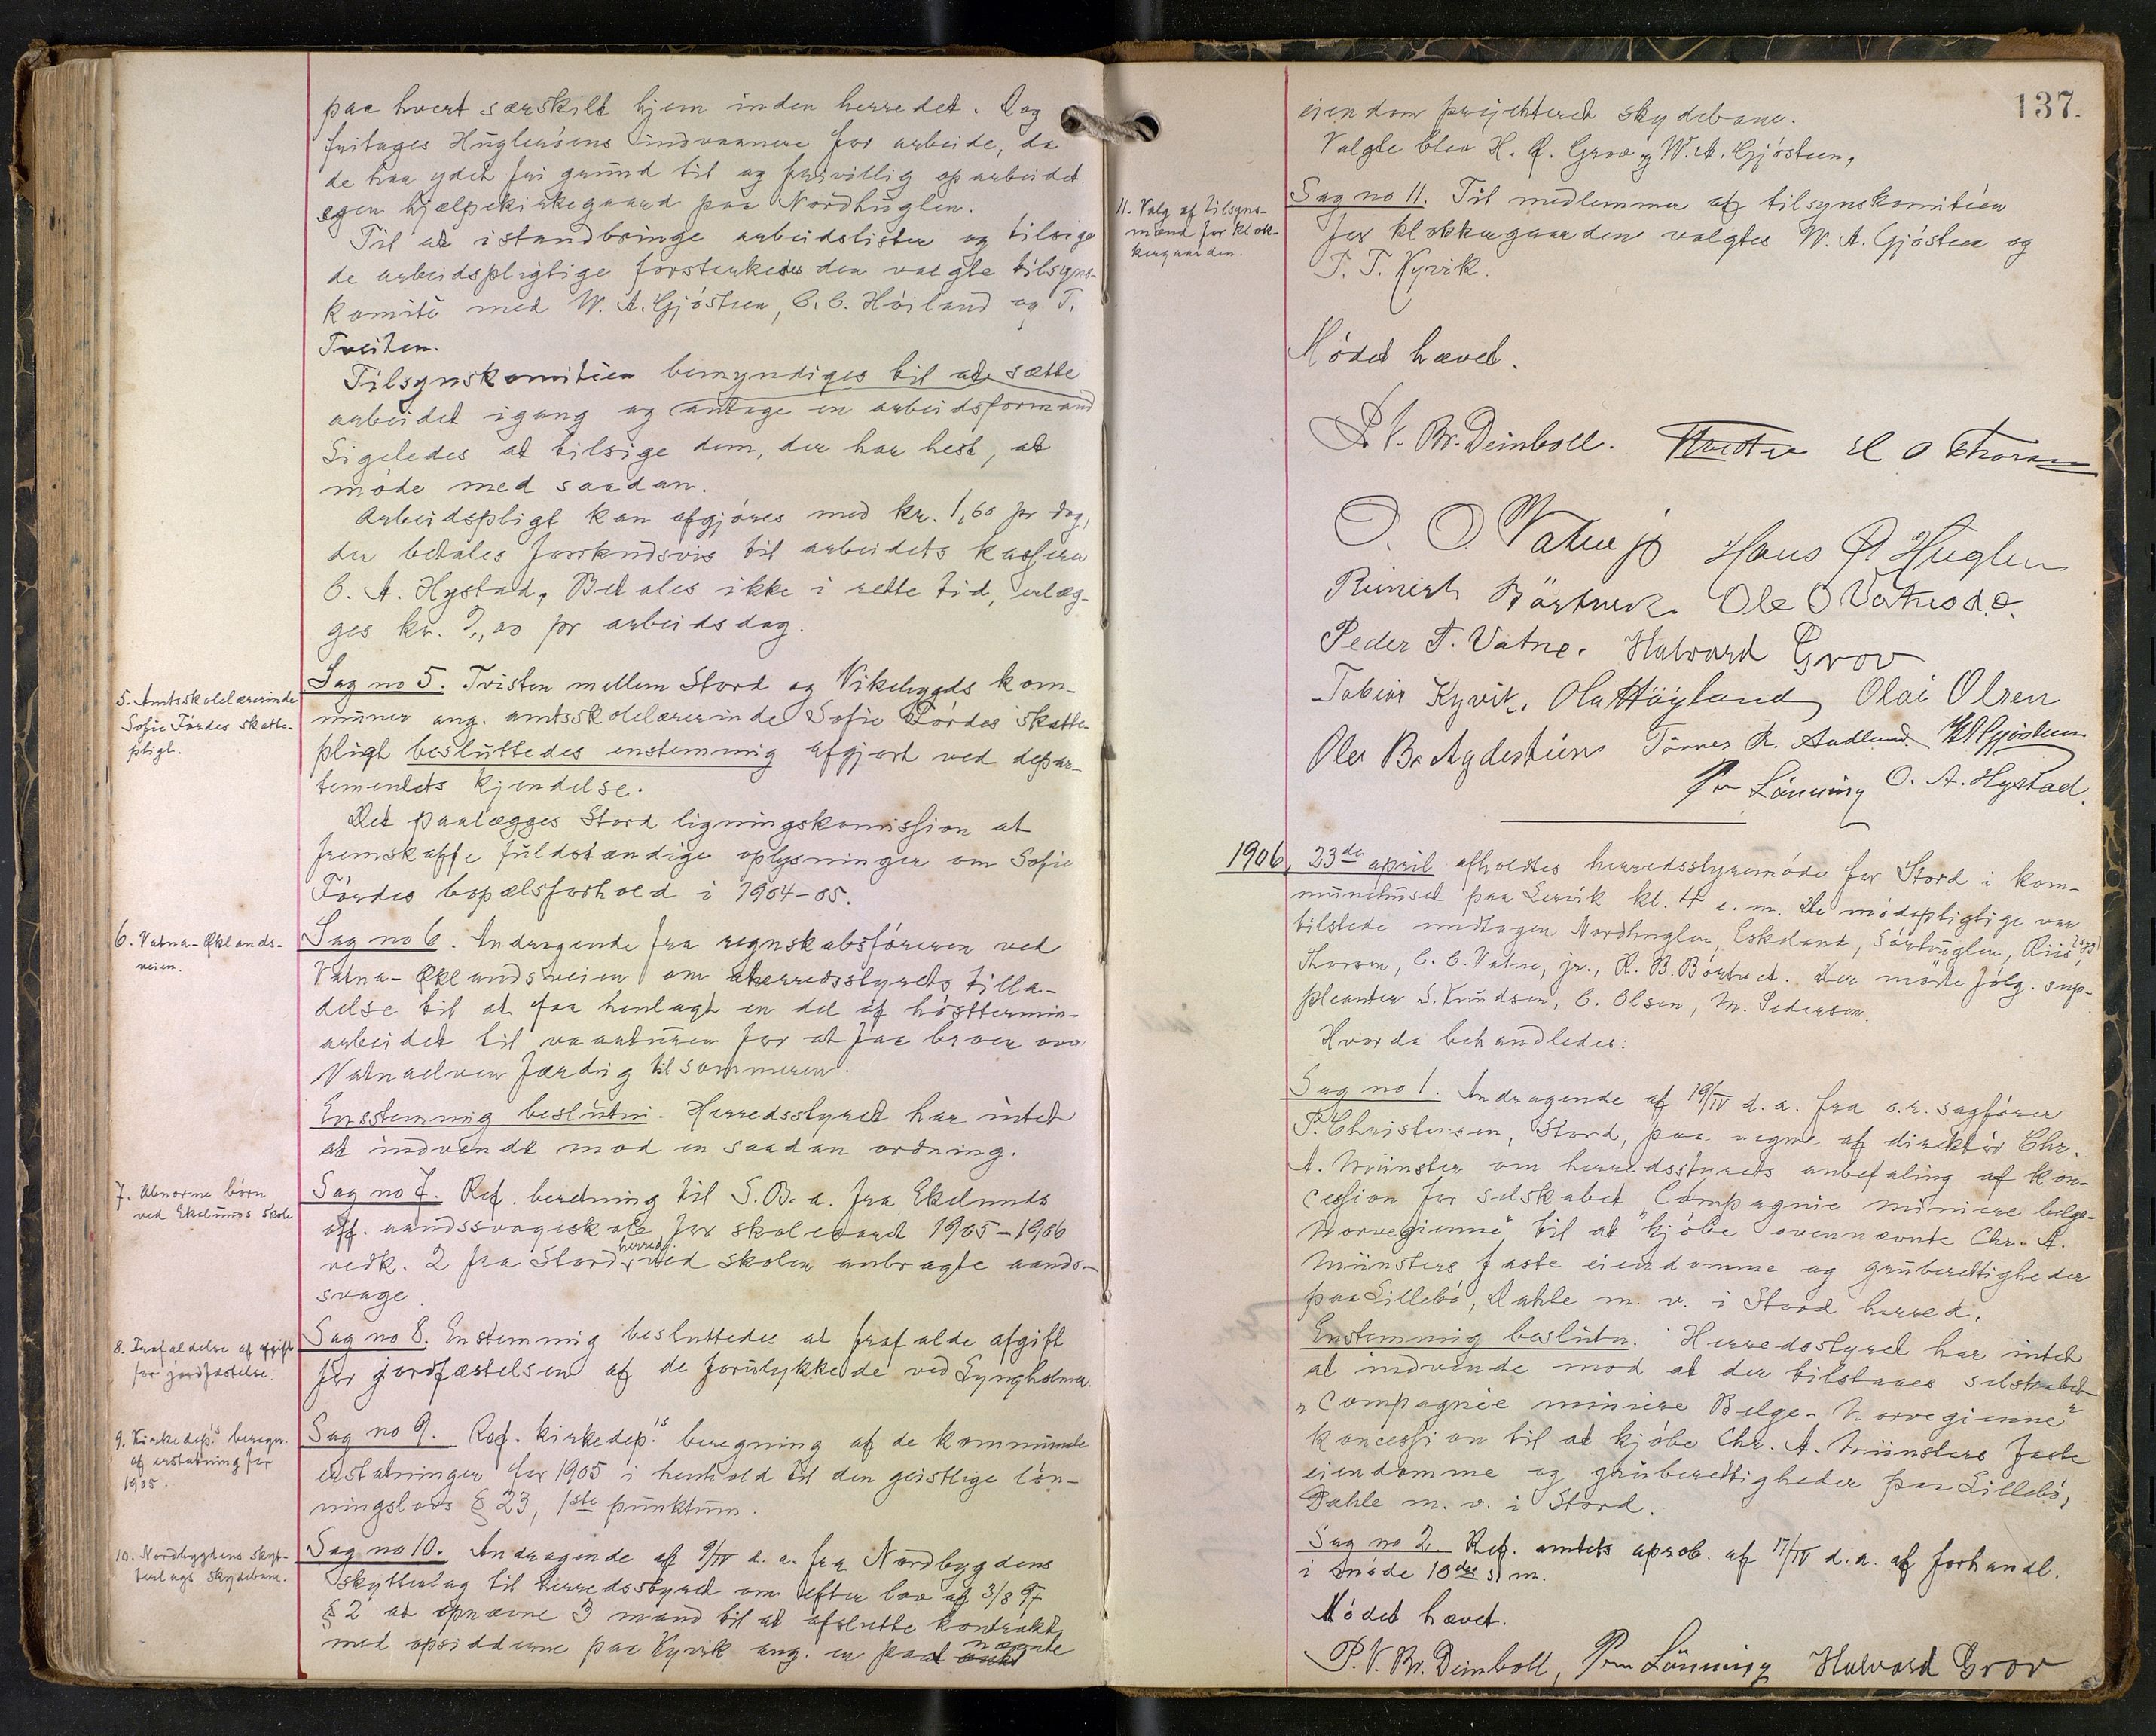 paa hvert særskilt hjem inden herredet. Dog
fritages Huglerøens indvaanere for arbeide, da
de har ydet fri grund til og frivillig oparbeidet
egen hjælpekirkegaard paa Nordhuglen.
Til at istandbringe arbeidslister og tilsige
de arbeidspligtige forsterkedes den valgte tilsyns-
komite med W. A. Gjøsteen, O. O. Høiland og T.
Tveiten.
Tilsynskomitéen bemyndiges til at sætte
arbeidet igang og antage en arbeidsformand
Ligeledes at tilsige dem, der har hest, at
møde med saadan.
Arbeidspligt kan afgjøres med kr. 1,60 pr dag,
der betales forskudsvis til arbeidets kasserer
O. A. Hystad. Betales ikke i rette tid, erlæg-
ges kr. 2,00 pr arbeidsdag.
5. Amtsskolelærerinde
Sofie Førdes skatte-
pligt.
Sag no 5. Tvisten mellem Stord og Vikebygds kom-
muner ang. amtsskolelærerinde Sofie Førdes skatte-
pligt besluttedes enstemmig afgjort ved depar-
tementets kjendelse.
Det paalægges Stord ligningskomission at
fremskaffe fuldstændige oplysninger om Sofie
Førdes bopælsforhold i 1904-05.
6. Vatna-Øklands-
veien.
Sag no 6. Andragende fra regnskabsføreren ved
Vatna-Øklandsveien om herredsstyrets tilla-
delse til at faa henlagt en del af høsttermin-
arbeidet til vaarturen for at faa broen over
Vatnaelven færdig til sommeren.
Ensstemmig beslutn. Herredsstyret har intet
at indvende mod en saadan ordning.
7. Abnorme børn
ved Ekelunds skole
Sag no 7. Ref. beretning til S.B. a. fra Ekelunds
off. aandssvageskole for skoleaaret 1905-1906
vedk. 2 fra Stord herred ved skolen anbragte aands-
svage.
8. Frafaldelse af afgift
for jordfæstelse.
Sag no 8. Enstemmig besluttedes at frafalde afgift
for jordfæstelsen af de forulykkede ved Lyngholmen.
9. Kirkedep.'s beregn.
af erstatning for
1905.
Sag no 9. Ref. kirkedep.'s beregning af de kommunale
erstatninger for 1905 i henhold til den geistlige løn-
ningslovs § 23, 1ste punktum.
10. Nordbygdens skyt-
terlags skydebane.
Sag no 10. Andragende af 9/IV d. a. fra Nordbygdens
skytterlag til herredsstyret om efter lov af 3/8 97
§ 2 at opnævne 3 mand til at afslutte kontrakt
med opsidderne paa Kyvik ang. en paa nævnte
137.
eiendom projekteret skydebane.
Valgte blev H. Q. Grov og W. A. Gjøsteen,
11. Valg af tilsyns-
mænd for klok-
kergaarden.
Sag no 11. Til medlemmer af tilsynskomitéen
for klokkergaarden valgtes W. A. Gjøsteen og
T. T. Kyvik.
Mødet hævet.
P. V. Br. Deinboll. H O Thorsen
O. O. Vatne jr Hans Ø. Huglen
Reinert Børtveit. Ole O Vatne d.e.
Peder T. Vatne. Halvard Grov
Tobias Kyvik. Ola Höyland Olai Olsen
Ole B. Agdestein Tønnes R. Aadland. WA Gjøsteen
Per Lønning O. A. Hystad.
1906, 23de april afholdtes herredsstyremøde for Stord i kom-
munehuset paa Lervik kl. 4 e. m. De mødepligtige var
tilstede undtagen Nordhuglen, Eskeland, Sørhuglen, Riis (syg)
Thorsen, O. O. Vatne, jr., R. B. Børtveit. Der mødte følg. sup-
pleanter S. Knudsen, O. Olsen, M. Pedersen.
Hvorda behandledes:
Sag no 1. Andragende af 19/IV d. a. fra o.r. sagfører
P. Christensen, Stord, paa vegne af direktør Chr.
A. Münster om herredsstyrets anbefaling af kon-
cession for selskabet "Compagnie miniere belge-
Norvegienne" til at kjøbe ovennævnte Chr. A.
Münsters faste eiendomme og gruberettigheder
paa Lillebø, Dahle m. v. i Stord herred.
Enstemmig beslutn. Herredsstyret har intet
at indvende mod at der tilstaaes selskabet
"Compagnie miniere Belge-Norvegienne"
koncession til at kjøbe Chr. A. Münsters faste
eiendomme og gruberettigheder paa Lillebø,
Dahle m. v. i Stord.
Sag no 2. Ref. amtets aprob. af 17/IV d.a. af forhandl.
i møde 10de s. m.
Mødet hævet.
P. V. Br. Deinboll, Per Lønning Halvard Grov